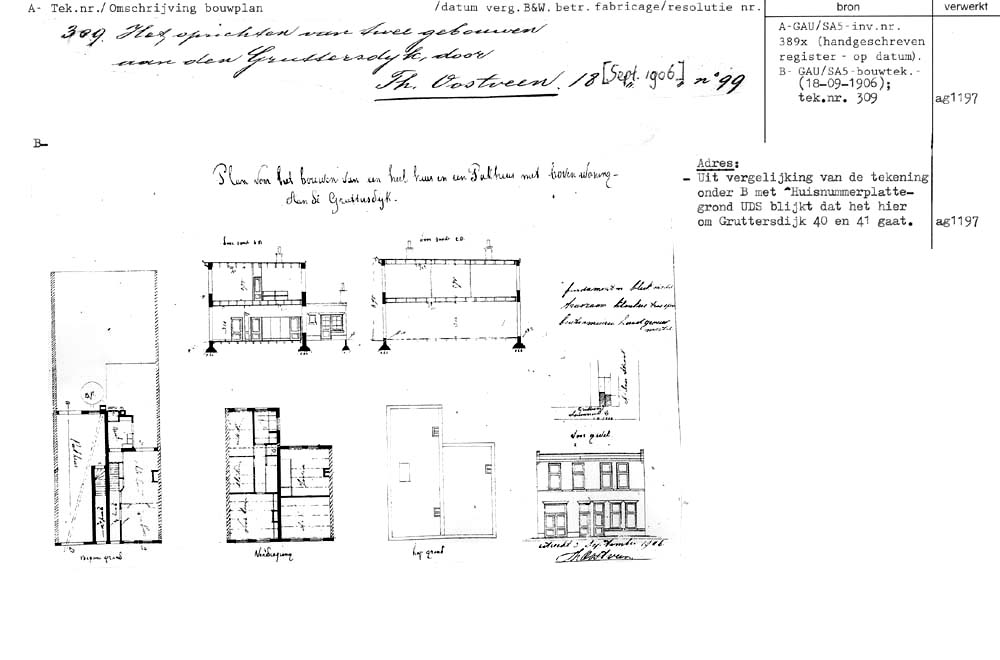 A- Tek.nr./Omschrijving bouwplan /datum verg.B&W.betr.fabricage/resolutie nr.
bron
verwerkt
309. Het oprichten van twee gebouwen
aan den Gruttersdyk, door
Th. Oostveen. 18 [Sept. 1906.] n° 99
A-GAU/SA5-inv.nr.
389x (handgeschreven
register - op datum).
B- GAU/SA5-bouwtek.-
(18-09-1906);
tek.nr. 309
ag1197
B-
Plan voor het bouwen van een heel huis en een Pakhuis met bovenwoning
Aan de Gruttersdyk.
Adres:
- Uit vergelijking van de tekening
onder B met "Huisnummerplatte-
grond UDS blijkt dat het hier
om Gruttersdijk 40 en 41 gaat.
ag1197
Door snede A.B.
Door snede C.D.
fundamenten
B.P.
Voor gevel
begane grond
Verdieping
kap grond
Utrecht 3 September 1906
Th Oostveen